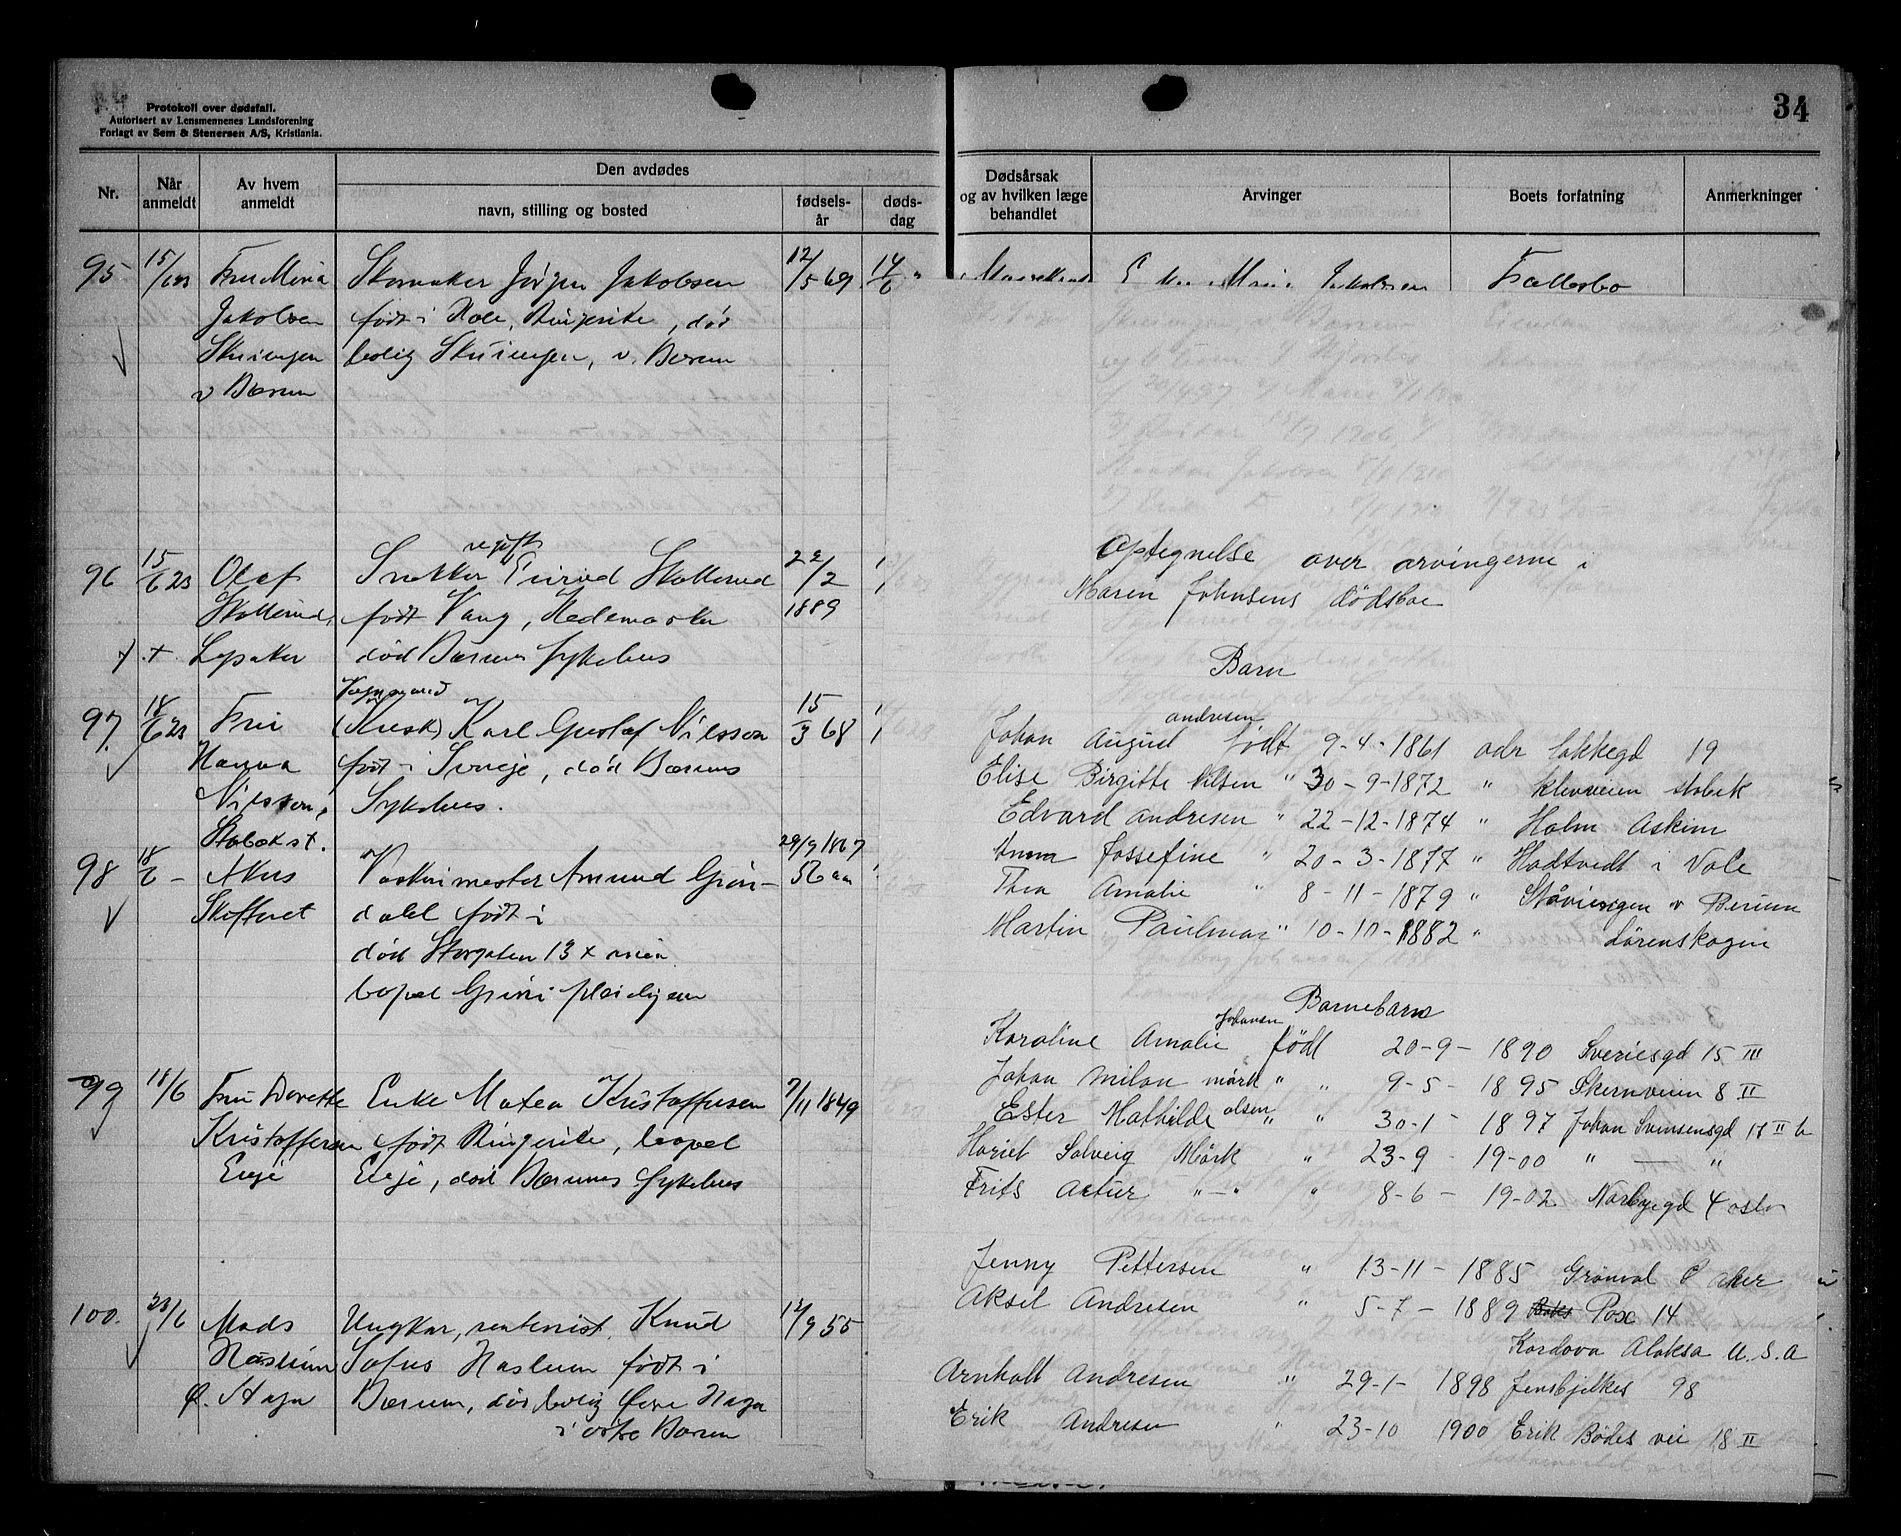 Protokoll over dødsfall.
Autorisert av Lensmennenes Landsforening
Forlagt av Sem & Stenersen A/S, Kristiania.
34
Nr.
Når anmeldt
Av hvem anmeldt
Den avdødes
navn, stilling og bosted
fødsels-år
døds-dag
Dødsårsak og av hvilken læge behandlet
Arvinger
Boets forfatning
Anmerkninger
95 15/6 23 Fru Maria Skomaker Jørgen Jakobsen 12/5 69 14/6
Jakobsen født i Hole, Ringerike, død
bolig v. Bærum
v Bærum
Enke Marie Jakobsen Fallesbo
96 15/6 23 Olaf Snekker Skollerud 22/2
født Vang, Hedemarken 1889
Lysaker død Bærums Sykehus
97. 18/6 23 Fru (Kusk) Karl Gustaf Nilsson 15/3 68
Hanna født i Sverje, død Bærums
Nilsson, Sykehus.
Stabekk st.
98 18/6 - Vaskerimester Amund Grøn- 29/9 1867
dahl født i 56 aar
død Storgaten 13 Kr.ania
bopel Grini
99 18/6 Fru Dorette Enke Matea Kristoffersen 9/11 1849
Kristoffersen født Ringerike, bopel
Evje Evje, død Bærums Sykehus
100. 23/6 Mads Ungkar, rentenist. Knud 12/9 55
Haslum Sofus Haslum født i
Ø. Haga Bærum, død bolig Øvre Haga
i østre Bærum
Optegnelse over arvingerne i
Maren Johnsens dødsboe
Barn
andresen
Johan August født 9-4-1861 adr Lakkegd 19
Elise Birgitte Nilsen " 30-9-1872 " klevveien stabek
Edvard Andresen " 22-12-1874 " Holm Askim
Anna Jossefine " 20-3-1877 " Hadtvedt i Vole
Thea Amalie " 8-11-1879 " v Berum
Martin Paulmar " 10-10-1882 " Lørenskogen
Barnebarn
Johansen
Karoline Amalie født 20-9-1890 Sveriesgd 15 III
Johan Milan mørk " " 9-5-1895 Skernveien 8 II
Ester Mathilde olsen " " 30-1-1897 Johan Svensensgd 11 II b
Hariet Solveig Mørk " 23-9-19-00 " — "
Frits Artur "-" " 8-6-19-02 Norbygd 4 oslo
Jenny Pettersen " 13-11-1885 Grønvol Ø aker
Aksel Andresen " 5-7-1889 Poxe 14
Kordova Alaksa U.S.A
Arnholt Andresen " 29-1-1898 Jensbjelkes 98
Erik Andresen " 23-10 1900 Erik Bödes vei 18 II